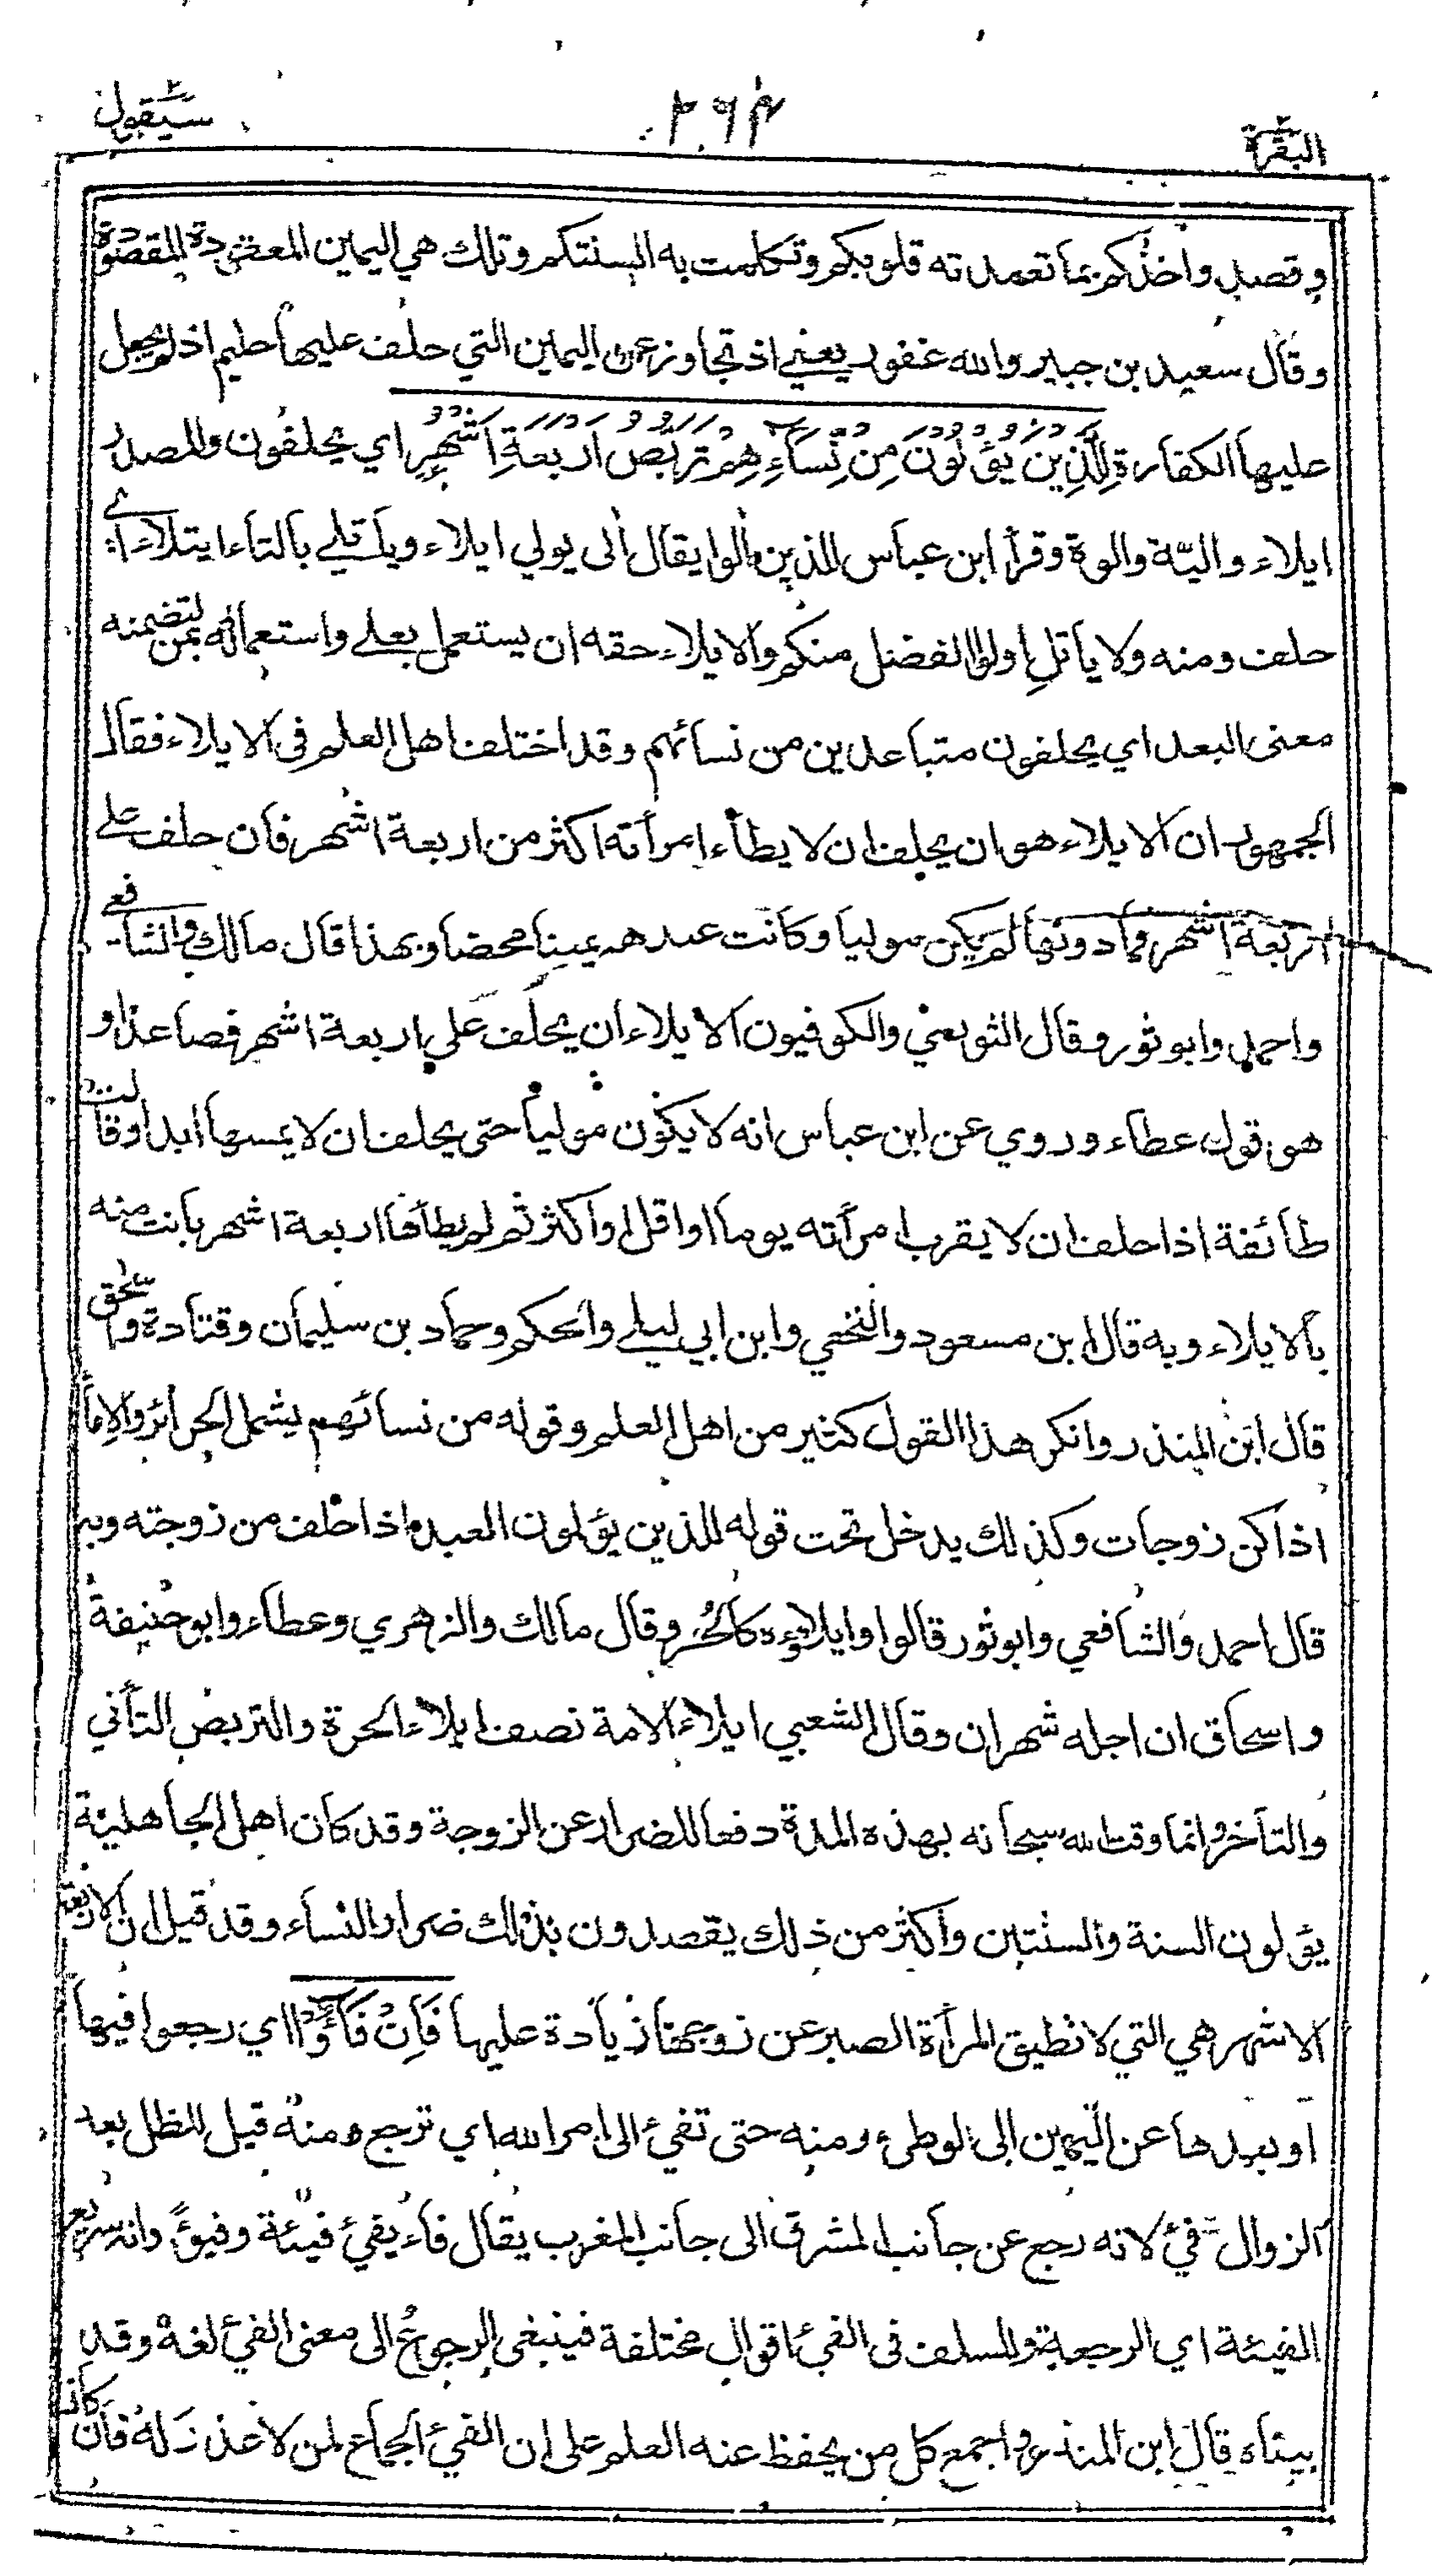 البقرة ٢٦٤ سيقول
وقصد واخذكم بما تعمدته قلوبكم وتكلمت به السنتكم وتلك هي اليمين المعقودة المقصودة
وقال سعيد بن جبير والله غفور يعني اذ تجاوز عن اليمين التي حلف عليها حليم اذ لم يجعل
عليها الكفارة لِلَّذِينَ يُؤْلُونَ مِنْ نِّسَآءِهِمْ تَرَبُّصُ اَرْبَعَةِ اَشْهُرٍ اي يحلفون والمصدر
ايلاء والية والوة وقرأ ابن عباس للذين آلوا يقال آلى يولي ايلاء ويأتلي بالتاء ايتلاء اي
حلف ومنه ولا يأتلِ اولوا الفضل منكم والايلاء حقه ان يستعمل بعلى واستعماله بمن لتضمنه
معنى البعد اي يحلفون متباعدين من نسائهم وقد اختلف اهل العلم في الايلاء فقال
الجمهور ان الايلاء هو ان يحلف ان لا يطاء امرأته اكثر من اربعة اشهر فان حلف على
اربعة اشهر فما دونها لم يكن موليا وكانت عندهم يمينا محضا وبهذا قال مالك والشافعي
واحمد وابو ثور وقال الثوري والكوفيون الايلاء ان يحلف على اربعة اشهر فصاعدا و
هو قول عطاء وروي عن ابن عباس انه لا يكون موليا حتى يحلف ان لا يمسها ابدا وقالت
طائفة اذا حلف ان لا يقرب امرأته يوما او اقل او اكثر ثم لم يطأها اربعة اشهر بانت منه
بالايلاء وبه قال ابن مسعود والنخعي وابن ابي ليلى والحكم وحماد بن سليمان وقتادة واسحق
قال ابن المنذر وانكر هذا القول كثير من اهل العلم وقوله من نسائهم يشمل الحرائر والاماء
اذا كن زوجات وكذلك يدخل تحت قوله للذين يؤلون العبد اذا حلف من زوجته وبه
قال احمد والشافعي وابو ثور قالوا وايلاؤه كالحر وقال مالك والزهري وعطاء وابو حنيفة
واسحاق ان اجله شهران وقال الشعبي ايلاء الامة نصف ايلاء الحرة والتربص التأني
والتأخر وانما وقت الله سبحانه بهذه المدة دفعا للضرار عن الزوجة وقد كان اهل الجاهلية
يؤلون السنة والسنتين واكثر من ذلك يقصدون بذلك ضرار النساء وقد قيل ان الاربعة
الاشهر هي التي لا تطيق المرأة الصبر عن زوجها زيادة عليها فَاِنْ فَآءُوْ اي رجعوا فيها
او بعدها عن اليمين الى الوطىء ومنه حتى تفيئ الى امر الله اي ترجع ومنه قيل للظل بعد
الزوال فيئ لانه رجع عن جانب المشرق الى جانب المغرب يقال فاء يفيئ فيئة وفيوءً وانه سريع
الفيئة اي الرجعة وللسلف في الفيئ اقوال مختلفة فينبغي الرجوع الى معنى الفيئ لغة وقد
بيناه قال ابن المنذر واجمع كل من يحفظ عنه العلم على ان الفيئ الجماع لمن لا عذر له فان كان